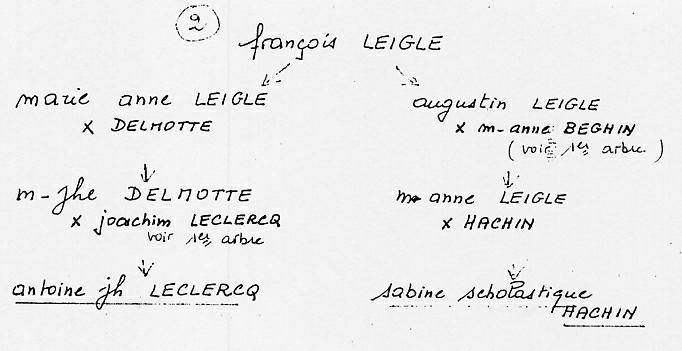 2
françois LEIGLE
marie anne LEIGLE
x DELMOTTE
m-jhe DELMOTTE
x joachim LECLERCQ
voir 1er arbre
antoine jh LECLERCQ
augustin LEIGLE
x m-anne BEGHIN
(voir 1er arbre)
m anne LEIGLE
x HACHIN
sabine scholastique
HACHIN